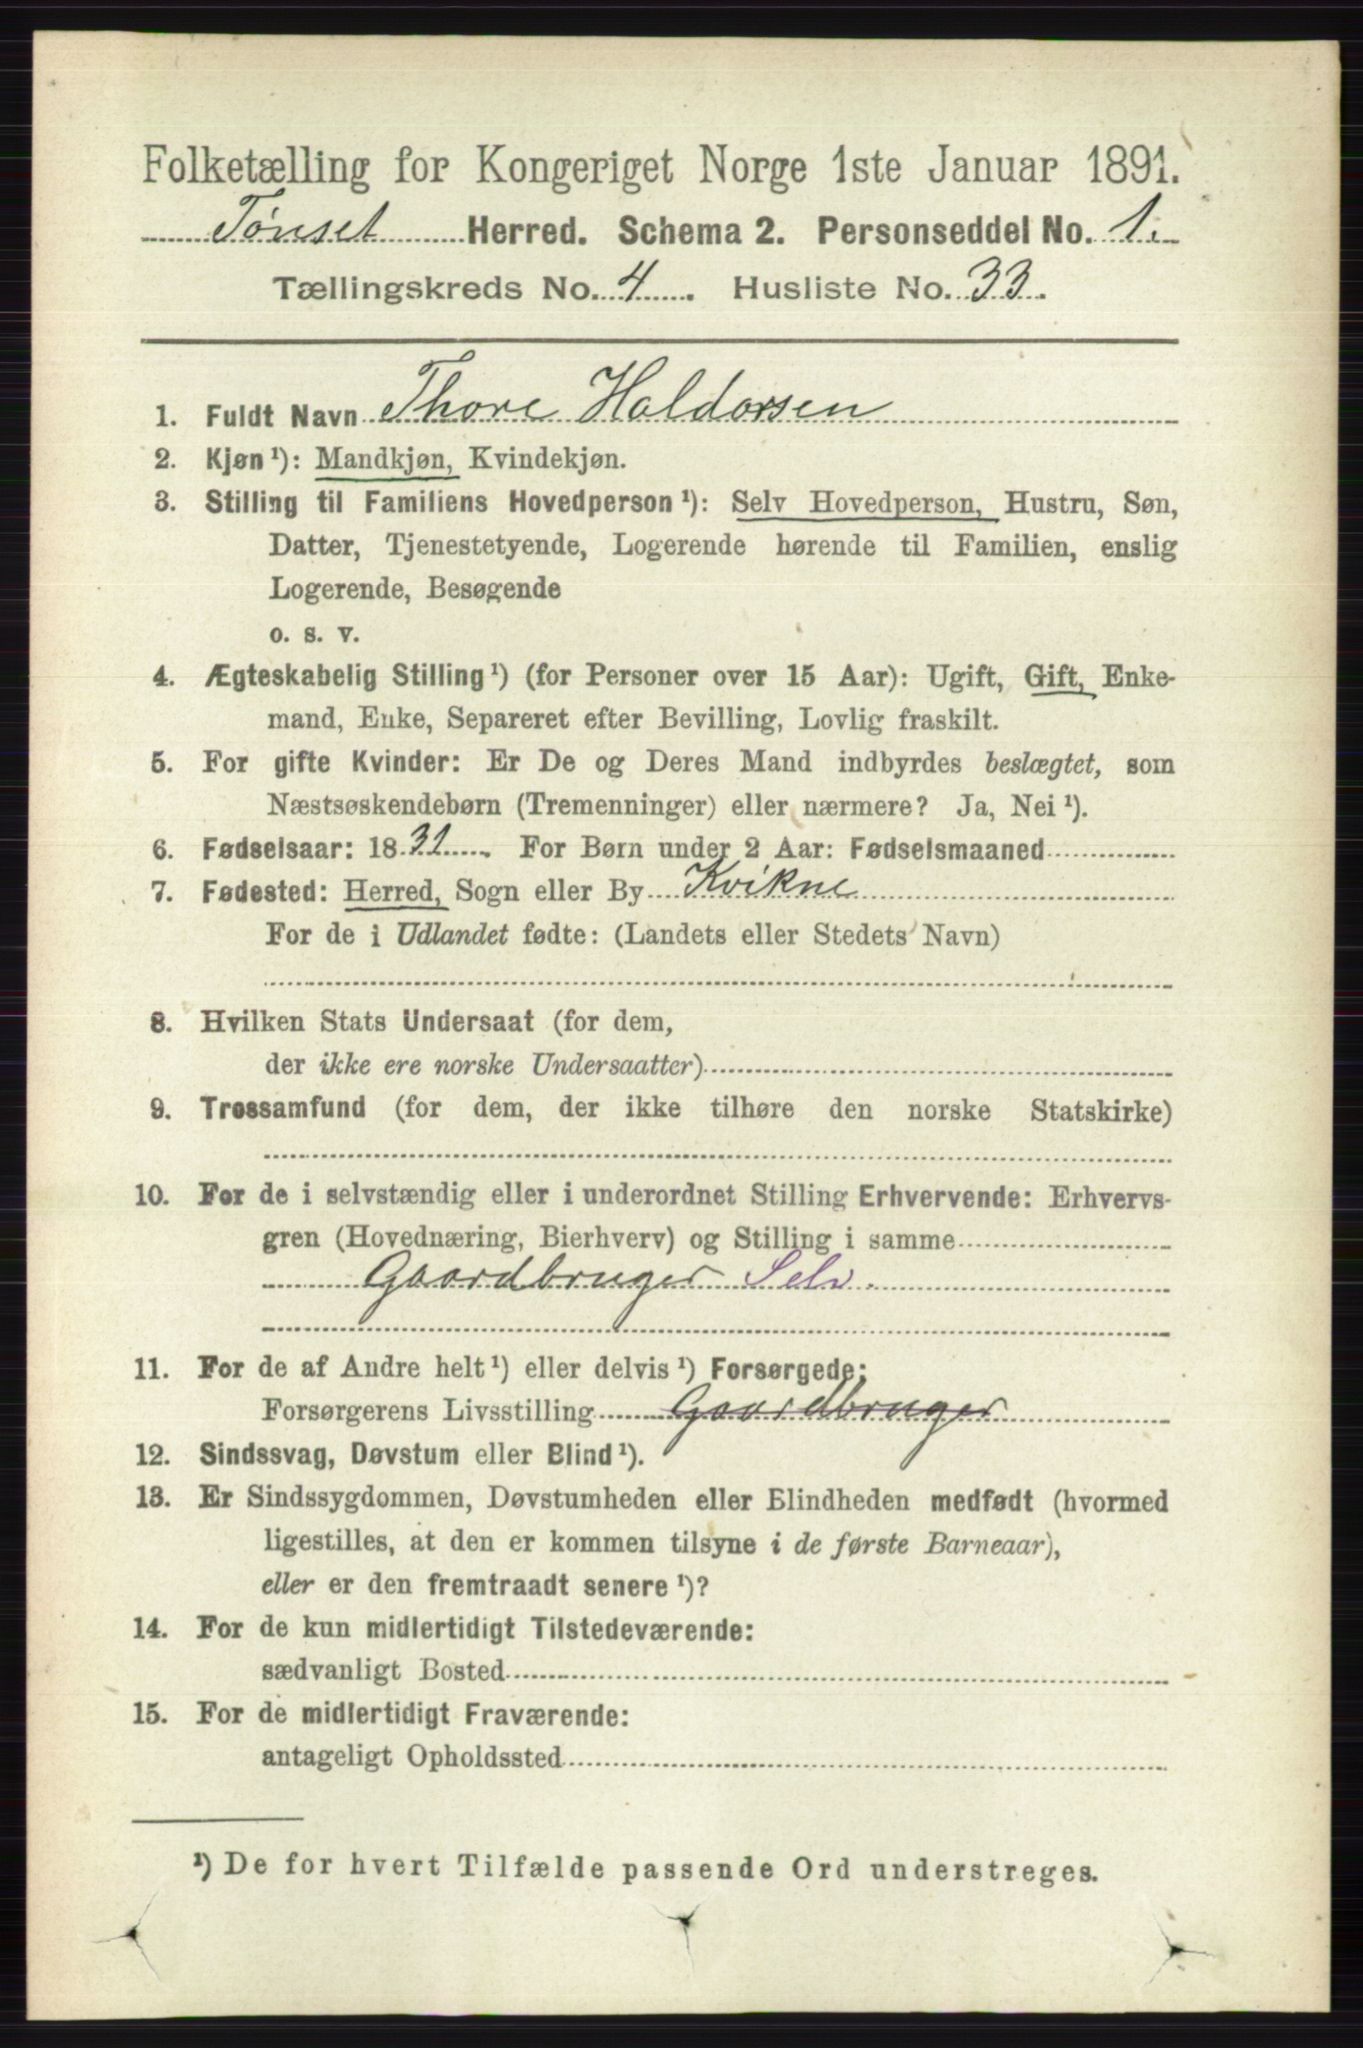 Folketælling for Kongeriget Norge 1ste Januar 1891.
Tønset Herred. Schema 2. Personseddel No. 1.
Tællingskreds No. 4. Husliste No. 33.
1. Fuldt Navn Thore Haldorsen
2. Kjøn ¹): Mandkjøn, Kvindekjøn.
3. Stilling til Familiens Hovedperson ¹): Selv Hovedperson, Hustru, Søn,
Datter, Tjenestetyende, Logerende hørende til Familien, enslig
Logerende, Besøgende
o. s. v.
4. Ægteskabelig Stilling ¹) (for Personer over 15 Aar): Ugift, Gift, Enke-
mand, Enke, Separeret efter Bevilling, Lovlig fraskilt.
5. For gifte Kvinder: Er De og Deres Mand indbyrdes beslægtet, som
Næstsøskendebørn (Tremenninger) eller nærmere? Ja, Nei ¹).
6. Fødselsaar: 1831. For Børn under 2 Aar: Fødselsmaaned
7. Fødested: Herred, Sogn eller By Kvikne
For de i Udlandet fødte: (Landets eller Stedets Navn)
8. Hvilken Stats Undersaat (for dem,
der ikke ere norske Undersaatter)
9. Trossamfund (for dem, der ikke tilhøre den norske Statskirke)
10. For de i selvstændig eller i underordnet Stilling Erhvervende: Erhvervs-
gren (Hovednæring, Bierhverv) og Stilling i samme
Gaardbruger Selv.
11. For de af Andre helt ¹) eller delvis ¹) Forsørgede:
Forsørgerens Livsstilling Gaardbruger
12. Sindssvag, Døvstum eller Blind ¹).
13. Er Sindssygdommen, Døvstumheden eller Blindheden medfødt (hvormed
ligestilles, at den er kommen tilsyne i de første Barneaar),
eller er den fremtraadt senere ¹)?
14. For de kun midlertidigt Tilstedeværende:
sædvanligt Bosted
15. For de midlertidigt Fraværende:
antageligt Opholdssted
¹) De for hvert Tilfælde passende Ord understreges.